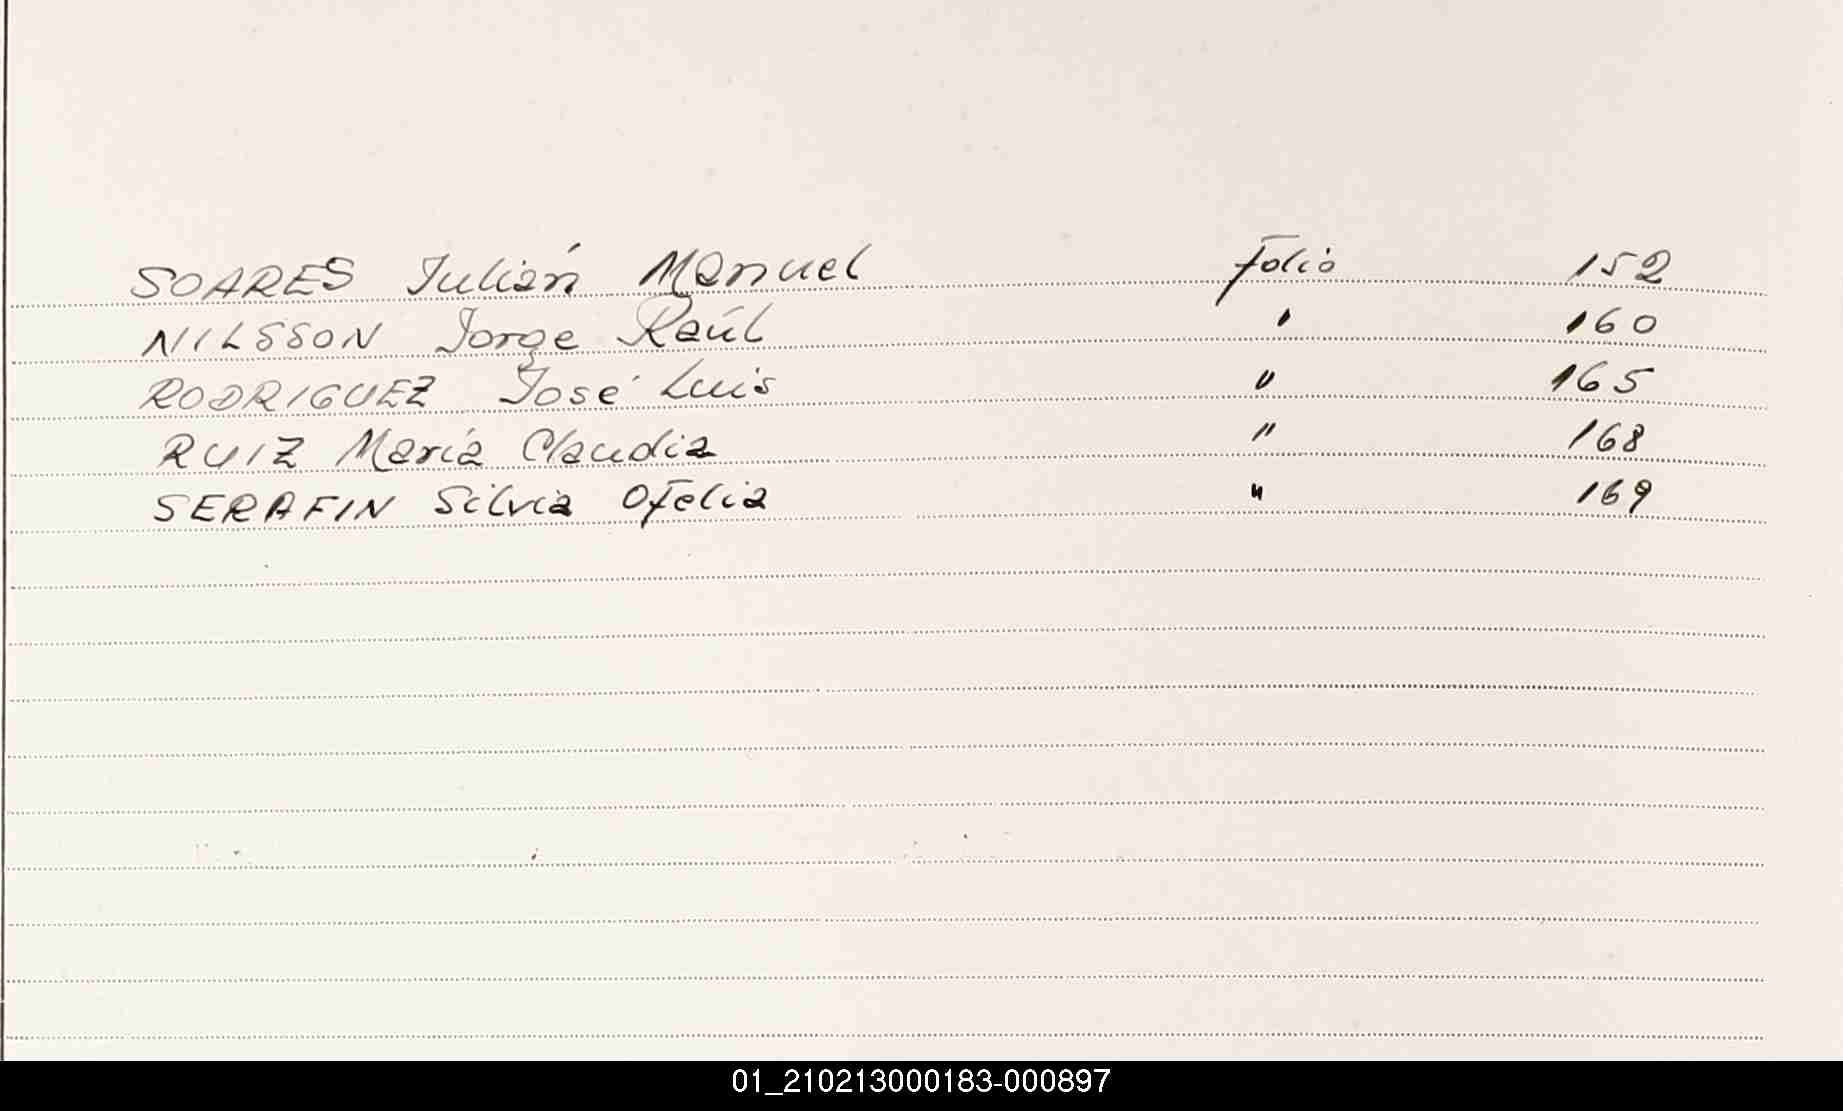 SOARES Julián Manuel Folio 152
NILSSON Jorge Raúl " 160
RODRIGUEZ José Luis " 165
RUIZ María Claudia " 168
SERAFIN Silvia Ofelia " 169
01_210213000183-000897